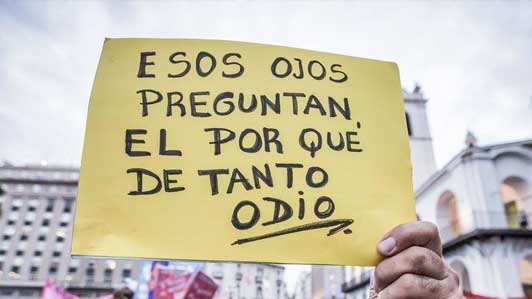 ESOS OJOS
PREGUNTAN
EL POR QUÉ
DE TANTO
ODIO